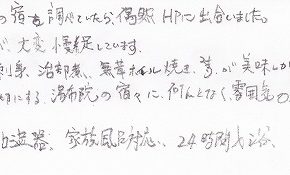 の宿を調べていたら、偶然HPに出会いました。
が、大変満足しています。
刺身、治部煮、無華ホイル焼き、等、が美味しか
にする、湯布院の宿々に、何んとなく、雰囲気の
加湿器、家族風呂対応、24時間大浴、